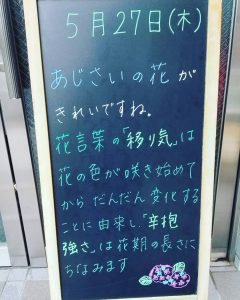 5月27日(木)
あじさいの花が
きれいですね。
花言葉の「移り気」は
花の色が咲き始めて
からだんだん変化する
ことに由来し「辛抱
強さ」は花期の長さに
ちなみます